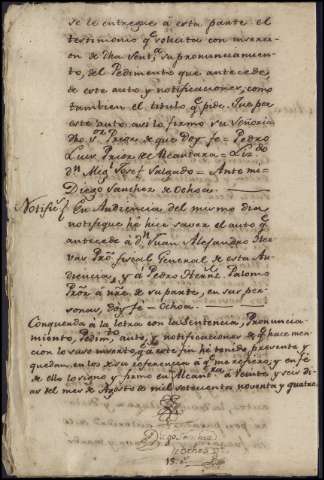 se le entregue á esta parte el
testimonio q.e solicita con insercion
on de dha Sent.a su pronunciamien
to, del Pedimento que antecede,
de este auto, y notificaciones, como
tambien el titulo q.e pide. Que por
este auto asi lo firmo su Señoria
dho S.or Prior de que doy fe = Pedro
Luis, Prior de Alcantara = Liz.do
d.n Mig.l Josef Salgado = Ante mi =
Diego Sanchez de Ochoa.
Notifi.n En Audiencia del mismo dia
notifique hé hice saver el auto q.e
antecede á d.n Juan Alejandro
Pro.r fiscal General de esta Au
diencia, y á Pedro Palomo
Pro.r á nre. de su parte, en sus per
sonas doy fe = Ochoa.
Concuerda á la letra con la Sentencia, Pronuncia-
miento, Pedim.to, auto, y notificaciones de q.e hace men
cion lo suso inserto, q.e á este fin he tenido presente y
quedan en los de su referencia á q.e me refiero, y en fe
de ello lo signo y firmo en Alcan.ra á veinte y seis di
as del mes de Agosto de mil setecientos noventa y quatro
Diego Sanchez
de Ochoa